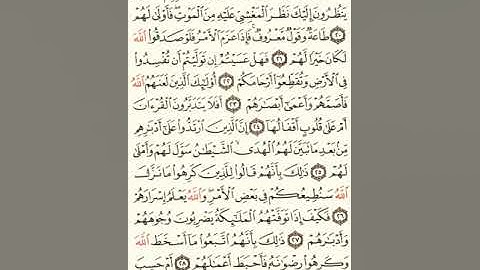 يَنظُرُونَ إِلَيْكَ نَظَرَ ٱلْمَغْشِيِّ عَلَيْهِ مِنَ ٱلْمَوْتِ ۖ فَأَوْلَىٰ لَهُمْ
﴿٢٠﴾ طَاعَةٌ وَقَوْلٌ مَّعْرُوفٌ ۚ فَإِذَا عَزَمَ ٱلْأَمْرُ فَلَوْ صَدَقُوا۟ ٱللَّهَ
لَكَانَ خَيْرًا لَّهُمْ ﴿٢١﴾ فَهَلْ عَسَيْتُمْ إِن تَوَلَّيْتُمْ أَن تُفْسِدُوا۟
فِى ٱلْأَرْضِ وَتُقَطِّعُوٓا۟ أَرْحَامَكُمْ ﴿٢٢﴾ أُو۟لَـٰٓئِكَ ٱلَّذِينَ لَعَنَهُمُ ٱللَّهُ
فَأَصَمَّهُمْ وَأَعْمَىٰٓ أَبْصَـٰرَهُمْ ﴿٢٣﴾ أَفَلَا يَتَدَبَّرُونَ ٱلْقُرْءَانَ
أَمْ عَلَىٰ قُلُوبٍ أَقْفَالُهَآ ﴿٢٤﴾ إِنَّ ٱلَّذِينَ ٱرْتَدُّوا۟ عَلَىٰٓ أَدْبَـٰرِهِم
مِّنۢ بَعْدِ مَا تَبَيَّنَ لَهُمُ ٱلْهُدَى ۙ ٱلشَّيْطَـٰنُ سَوَّلَ لَهُمْ وَأَمْلَىٰ
لَهُمْ ﴿٢٥﴾ ذَٰلِكَ بِأَنَّهُمْ قَالُوا۟ لِلَّذِينَ كَرِهُوا۟ مَا نَزَّلَ
ٱللَّهُ سَنُطِيعُكُمْ فِى بَعْضِ ٱلْأَمْرِ ۖ وَٱللَّهُ يَعْلَمُ إِسْرَارَهُمْ
﴿٢٦﴾ فَكَيْفَ إِذَا تَوَفَّتْهُمُ ٱلْمَلَـٰٓئِكَةُ يَضْرِبُونَ وُجُوهَهُمْ
وَأَدْبَـٰرَهُمْ ﴿٢٧﴾ ذَٰلِكَ بِأَنَّهُمُ ٱتَّبَعُوا۟ مَآ أَسْخَطَ ٱللَّهَ
وَكَرِهُوا۟ رِضْوَٰنَهُۥ فَأَحْبَطَ أَعْمَـٰلَهُمْ ﴿٢٨﴾ أَمْ حَسِبَ